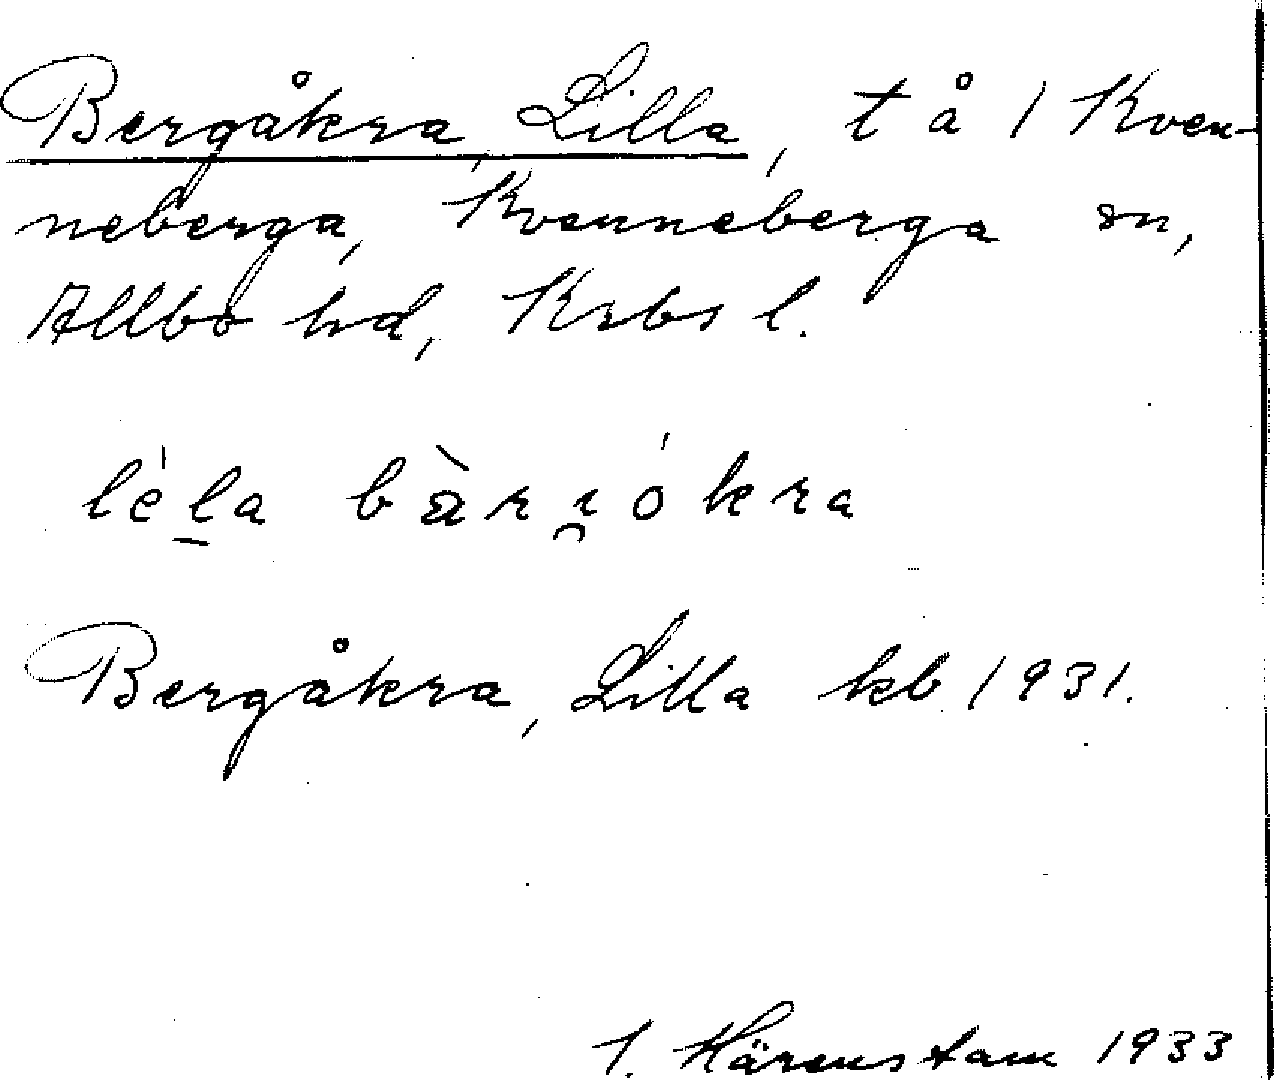 Bergåkra, Lilla, t å 1 Kven-
neberga, Kvenneberga sn,
Allbo hd, Krbs l.
lèla bàrı̯ókra
Bergåkra, Lilla kb 1931.
I. Härenstam 1933